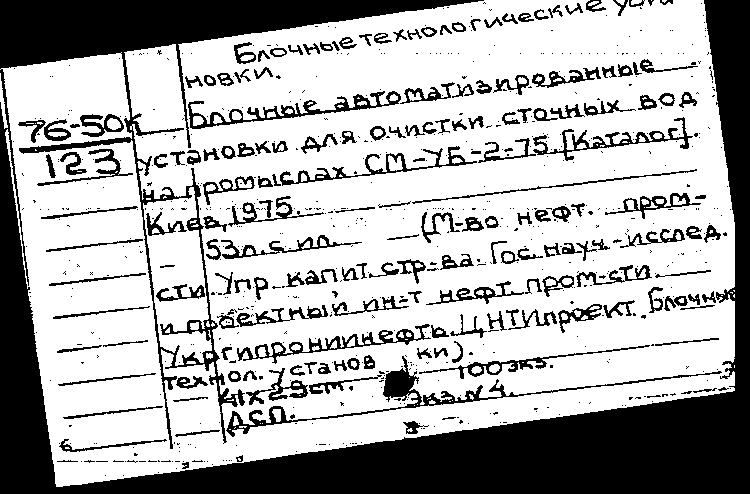 Блочные технологические уста
новки.
76-50к
123
Блочные автоматизированные
установки для очистки сточных вод
на промыслах. СМ-УБ-2-75. [Каталог].
Киев, 1975.
53л. с ил. (М-во нефт. пром-
сти. Упр. капит. стр-ва. Гос. науч.-исслед.
и проектный ин-т нефт. пром-сти.
Укргипрониинефть. ЦНТИпроект. Блочные
технол. установ ки).
41х29см. 100 экз.
ДСП. Экз. N 4.
6